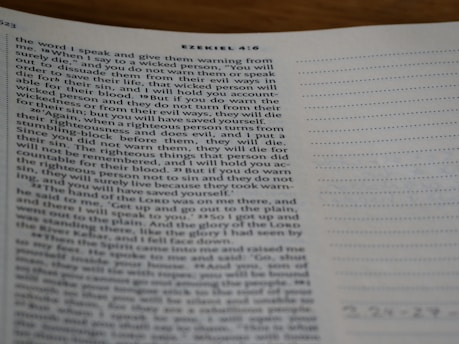 523
EZEKIEL 4:6
the word I speak and give them warning from
me. 18 When I say to a wicked person, "You will
surely die," and you do not warn them or speak
out to dissuade them from their evil ways in
order to save their life, that wicked person will
die for their sin, and I will hold you account-
able for their blood. 19 But if you do warn the
wicked person and they do not turn from their
wickedness or from their evil ways, they will die
for their sin; but you will have saved yourself.
20 "Again, when a righteous person turns from
their righteousness and does evil, and I put a
stumbling-block before them, they will die.
Since you did not warn them, they will die for
their sin. The righteous things that person did
will not be remembered, and I will hold you ac-
countable for their blood. 21 But if you do warn
the righteous person not to sin and they do not
sin, they will surely live because they took warn-
ing, and you will have saved yourself."
22 The hand of the LORD was on me there, and
he said to me, "Get up and go out to the plain,
and there I will speak to you." 23 So I got up and
went out to the plain. And the glory of the LORD
was standing there, like the glory I had seen by
the River Kebar, and I fell face down.
24 Then the Spirit came into me and raised me
to my feet. He spoke to me and said: "Go, shut
yourself inside your house. 25 And you, son of
man, they will tie with ropes; you will be bound
so that you cannot go out among the people. 26 I
will make your tongue stick to the roof of your